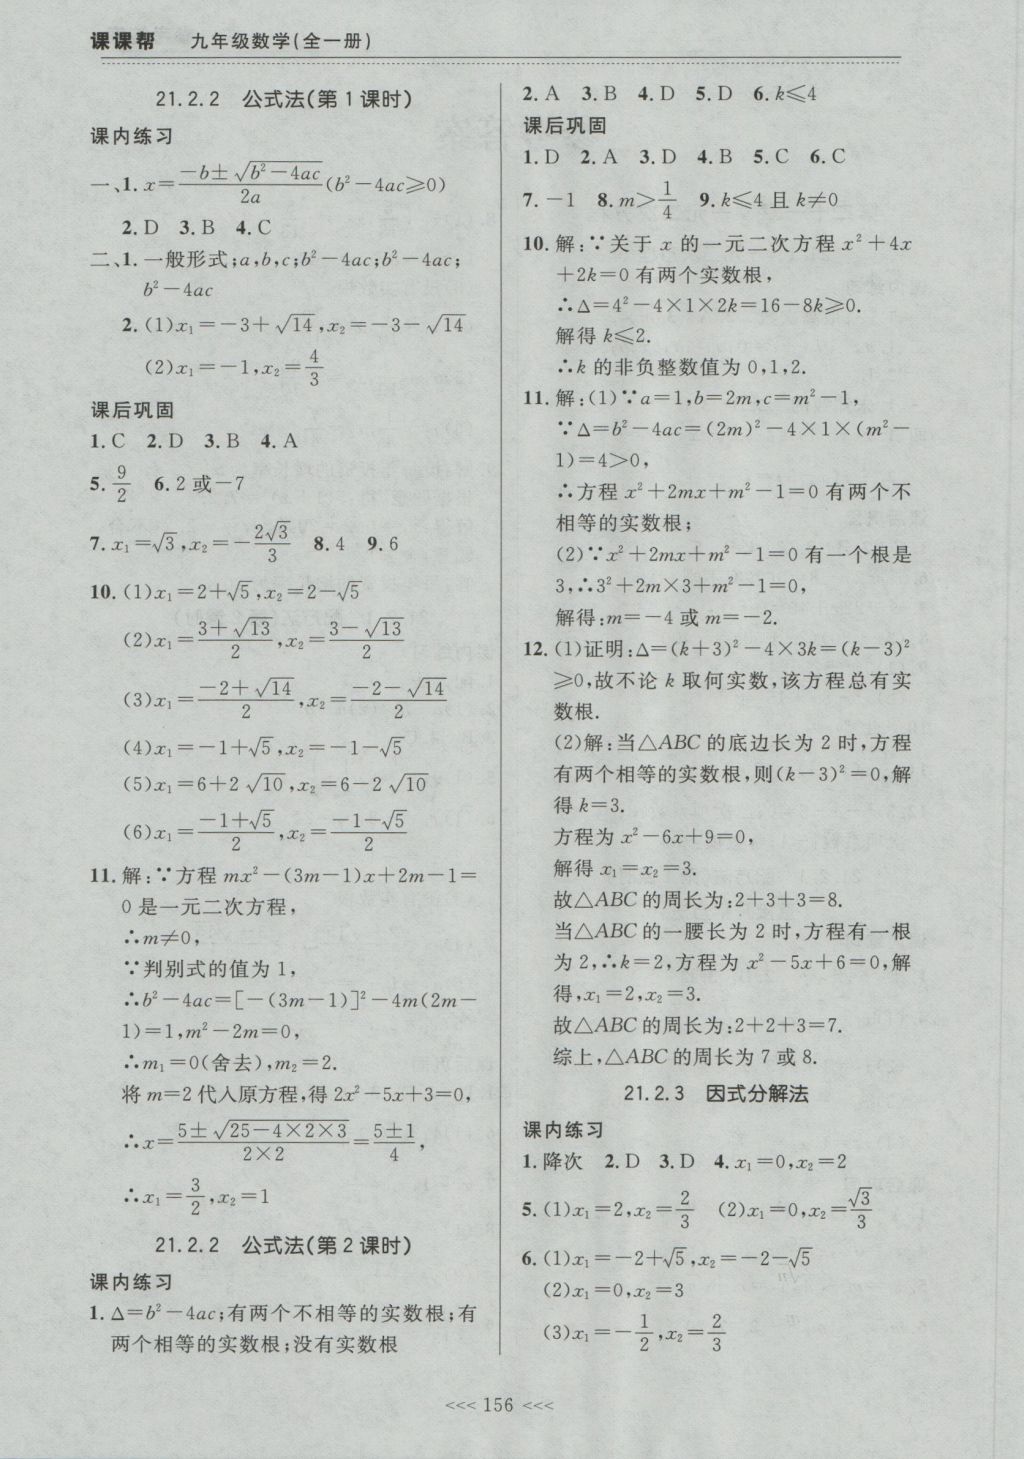 课课帮 九年级数学(全一册)
21.2.2 公式法(第1课时)
课内练习
一、1. x=\frac{-b±\sqrt{b²-4ac}}{2a}(b²-4ac⩾0)
2. D 3. B 4. C
二、1. 一般形式;a,b,c;b²-4ac;b²-4ac;
b²-4ac
2. (1)x₁=-3+√14,x₂=-3-√14
(2)x₁=-1,x₂=\frac{4}{3}
课后巩固
1. C 2. D 3. B 4. A
5. \frac{9}{2} 6. 2或-7
7. x₁=√3,x₂=-\frac{2√3}{3} 8. 4 9. 6
10. (1)x₁=2+√5,x₂=2-√5
(2)x₁=\frac{3+√13}{2},x₂=\frac{3-√13}{2}
(3)x₁=\frac{-2+√14}{2},x₂=\frac{-2-√14}{2}
(4)x₁=-1+√5,x₂=-1-√5
(5)x₁=6+2√10,x₂=6-2√10
(6)x₁=\frac{-1+√5}{2},x₂=\frac{-1-√5}{2}
11. 解:∵方程 mx²-(3m-1)x+2m-1=
0是一元二次方程,
∴m≠0,
∵判别式的值为1,
∴b²-4ac=[-(3m-1)]²-4m(2m-
1)=1,m²-2m=0,
∴m₁=0(舍去),m₂=2.
将m=2代入原方程,得2x²-5x+3=0,
∴x=\frac{5±\sqrt{25-4×2×3}}{2×2}=\frac{5±1}{4},
∴x₁=\frac{3}{2},x₂=1
21.2.2 公式法(第2课时)
课内练习
1. Δ=b²-4ac;有两个不相等的实数根;有
两个相等的实数根;没有实数根
2. A 3. B 4. D 5. D 6. k⩽4
课后巩固
1. D 2. A 3. D 4. B 5. C 6. C
7. -1 8. m>\frac{1}{4} 9. k⩽4且k≠0
10. 解:∵关于 x 的一元二次方程 x²+4x
+2k=0有两个实数根,
∴Δ=4²-4×1×2k=16-8k⩾0.
解得k⩽2.
∴k的非负整数值为0,1,2.
11. 解:(1)∵a=1,b=2m,c=m²-1,
∵Δ=b²-4ac=(2m)²-4×1×(m²-
1)=4>0,
∴方程 x²+2mx+m²-1=0有两个不
相等的实数根;
(2)∵x²+2mx+m²-1=0有一个根是
3,∴3²+2m×3+m²-1=0,
解得:m=-4或m=-2.
12. (1)证明:Δ=(k+3)²-4×3k=(k-3)²
⩾0,故不论k取何实数,该方程总有实
数根.
(2)解:当△ABC的底边长为2时,方程
有两个相等的实数根,则(k-3)²=0,解
得k=3.
方程为x²-6x+9=0,
解得x₁=x₂=3.
故△ABC的周长为:2+3+3=8.
当△ABC的一腰长为2时,方程有一根
为2,∴k=2,方程为x²-5x+6=0,解
得,x₁=2,x₂=3.
故△ABC的周长为:2+2+3=7.
综上,△ABC的周长为7或8.
21.2.3 因式分解法
课内练习
1. 降次 2. D 3. D 4. x₁=0,x₂=2
5. (1)x₁=2,x₂=\frac{2}{3} (2)x₁=0,x₂=\frac{√3}{3}
6. (1)x₁=-2+√5,x₂=-2-√5
(2)x₁=0,x₂=3
(3)x₁=-\frac{1}{2},x₂=\frac{2}{3}
<<< 156 <<<